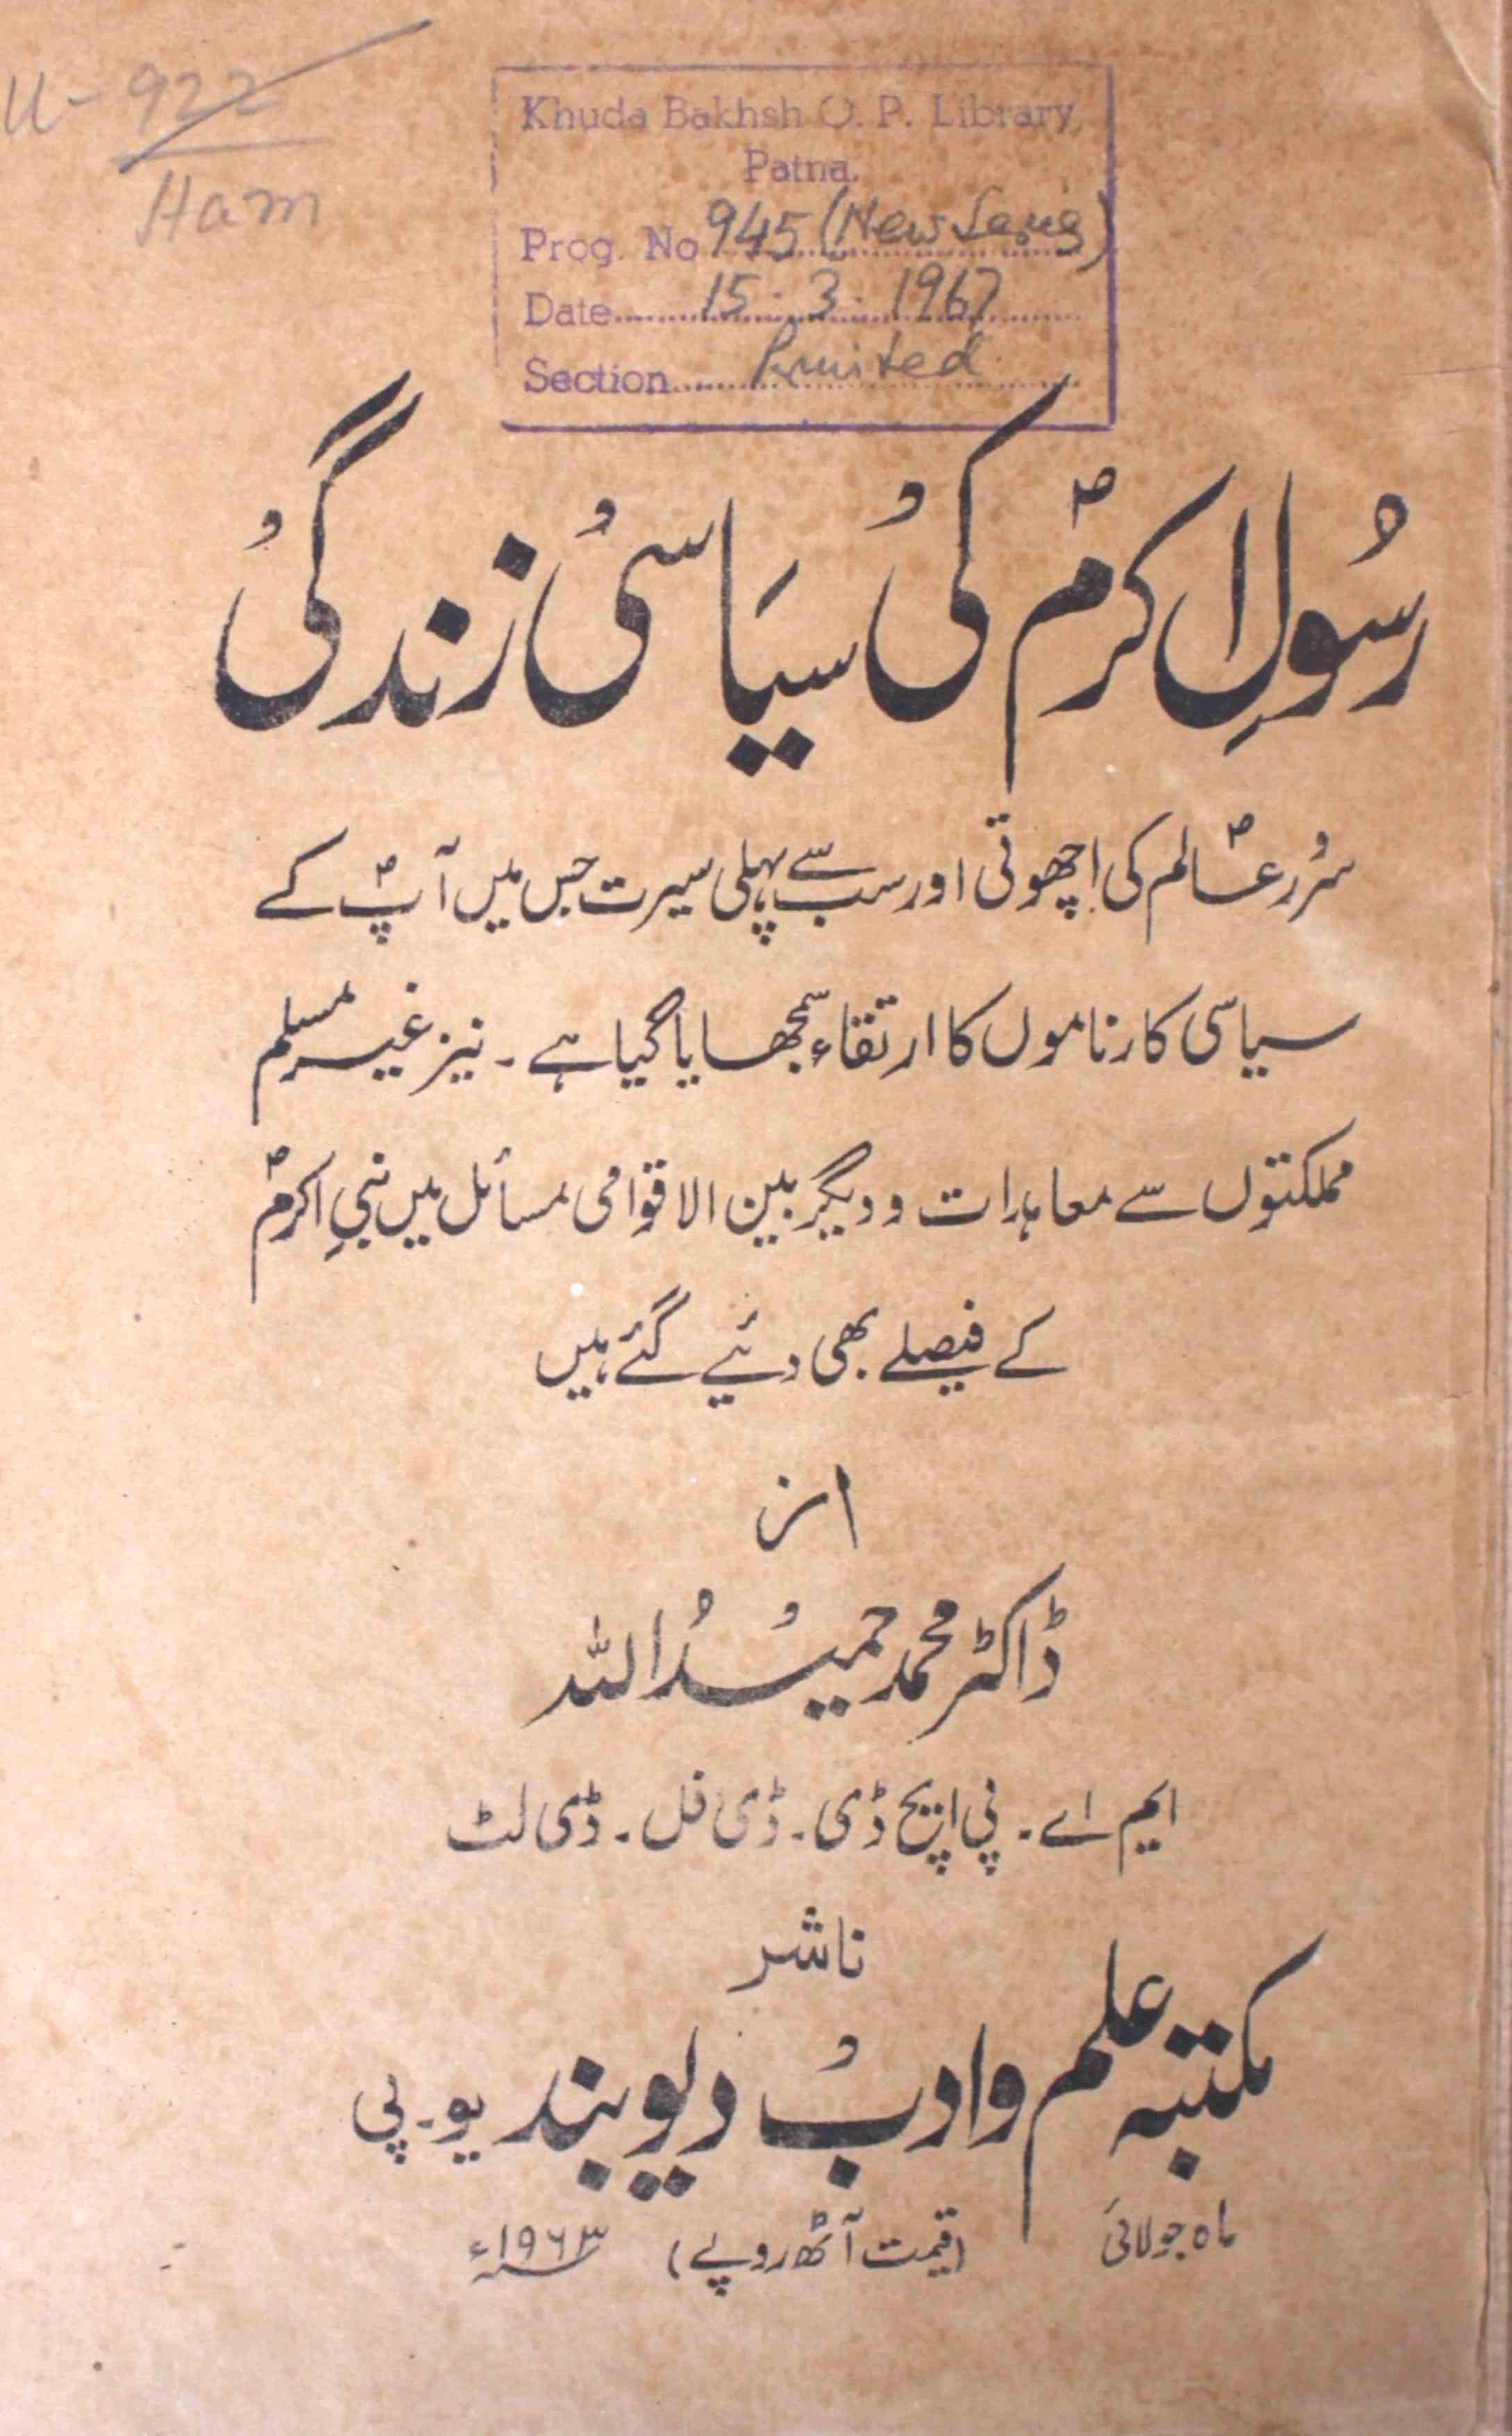 U-922
Ham
Khuda Bakhsh O. P. Library,
Patna.
Prog. No 945 (New
Date 15-3-1967
Section Printed
رسُولِ اکرمؐ کی سیَاسی زندگی
سرُرِ عَالمؐ کی اچھوتی اور سب سے پہلی سیرت جس میں آپؐ کے
سیاسی کارناموں کا ارتقاء سمجھایا گیا ہے ۔ نیز غیر مسلم
مملکتوں سے معاہدات و دیگر بین الاقوامی مسائل میں نبیِ اکرمؐ
کے فیصلے بھی دئیے گئے ہیں
از
ڈاکٹر محمد حمیدُ اللہ
ایم اے ۔ پی ایچ ڈی ۔ ڈی فل ۔ ڈی لٹ
ناشر
مکتبہ علم و ادب دیوبند یو ۔ پی
ماہ جولائی (قیمت آٹھ روپے) ۱۹۶۳ء